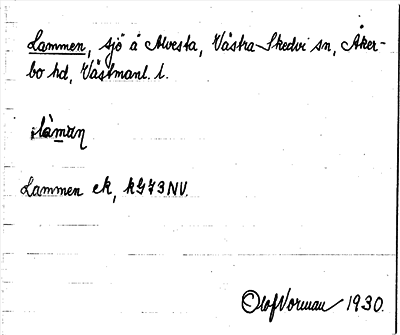 Lammen, sjö å Alvesta, Västra Skedvi sn, Åker-
bo hd, Västmanl. l.
Lammen ek, kG73NV.
Olof Norman 1930.